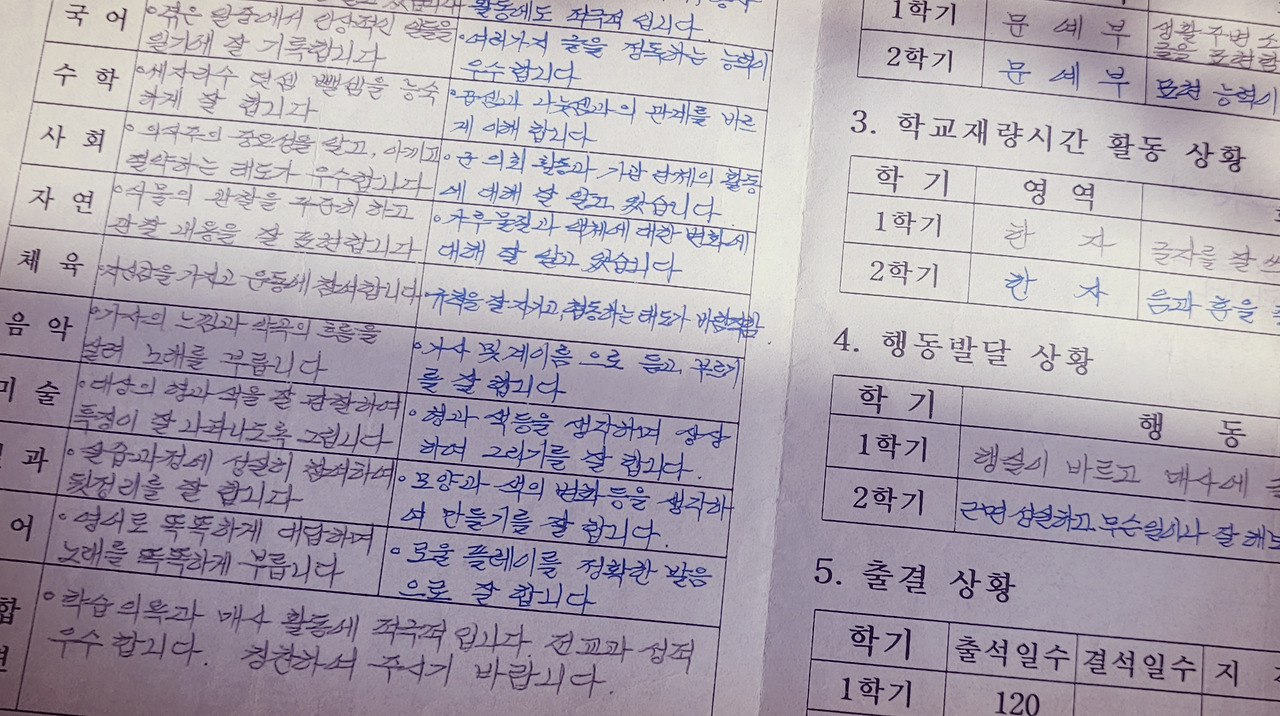 활동에도 적극적 입니다.
국 어
◦겪은 일중에서 인상적인 일들을
일기에 잘 기록합니다
◦여러가지 글을 정독하는 능력이
우수합니다
수 학
◦세자리수 덧셈 뺄셈을 능숙
하게 잘 합니다
◦곱셈과 나눗셈과의 관계를 바르
게 이해 합니다
사 회
◦의식주의 중요성을 알고, 아끼고
절약하는 태도가 우수합니다
◦군 의회 활동과, 기관 단체의 활동
에 대해 잘 알고, 있습니다
자 연
◦식물의 관찰을 꾸준히 하고
관찰 내용을 잘 표현합니다
◦가루물질과 액체에 대한 변화에
대해 잘 알고 있습니다
체 육
◦자신감을 가지고 운동에 참여합니다
◦규칙을 잘 지키고, 협동하는 태도가 바람직함
음 악
◦가사의 느낌과 악곡의 흐름을
살려 노래를 부릅니다
◦가사 및 계이름 으로 듣고, 부르기
를 잘 합니다
미 술
◦대상의 형과 색을 잘 관찰하여
특징이 잘 나타나도록 그립니다
◦형과 색등을 생각하며 상상
하여 그리기를 잘 합니다.
과
◦실습과정에 성실히 참여하여
뒷정리를 잘 합니다
◦모양과 색의 변화 등을 생각하
여 만들기를 잘 합니다.
어
◦영어로 똑똑하게 대답하며
노래를 똑똑하게 부릅니다
◦로울 플레이를 정확한 발음
으로 잘 합니다
합
◦학습의욕과 매사 활동에 적극적 입니다. 전교과 성적
우수 합니다. 칭찬하여 주시기 바랍니다.
1학기 문 예 부 생활 주변 소
글을 표현함
2학기 문 예 부 표현 능력이
3. 학교재량시간 활동 상황
학 기 영 역
1학기 한 자 글자를 잘 쓰
2학기 한 자 음과 훈을
4. 행동발달 상황
학 기 행 동
1학기 행실이 바르고 매사에
2학기 근면 성실하고, 무슨일이나 잘 해
5. 출결 상황
학기 출석일수 결석일수 지
1학기 120